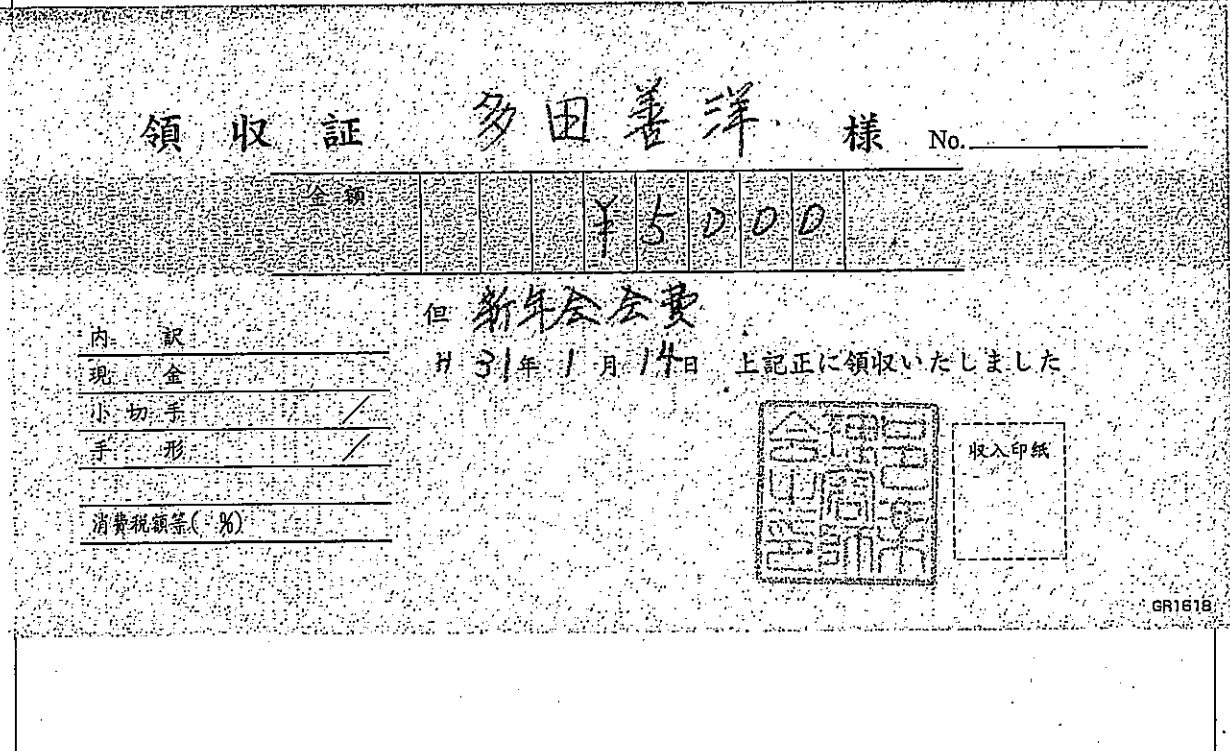 領収証 多田善洋 様 No.
金額 ¥5000
但 新年会会費
H31年1月14日 上記正に領収いたしました
内訳
現金
小切手 /
手形 /
消費税額等( %)
収入印紙
GR1618